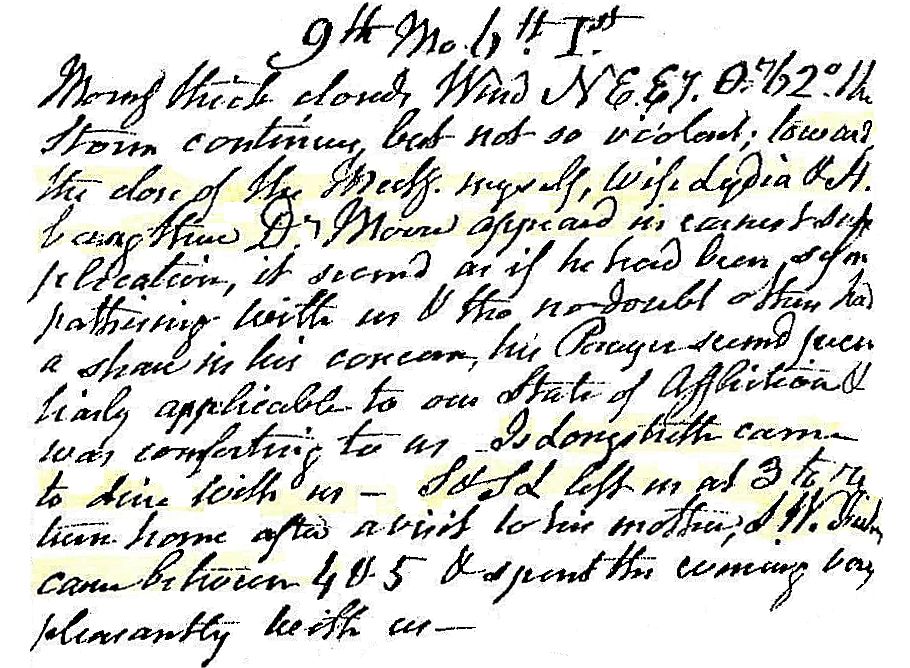 9th Mo. 6th 1st
Morng thick clouds Wind N E. & 72° the
Storm continues, but not so violent; toward
the close of the Meetg. myself, wife Lydia & H.
being there D. Moore appeard in earnest sup
plication, it seemd as if he had been sym
pathising with us & tho no doubt others had
a share in his concern, his Prayer seemd pecu
liarly applicable to our State of Affliction &
was comforting to us Is Longstreth came
to dine with us — left us at 3 to re
turn home after a visit to his mother, W.
came between 4 & 5 & spent the evening very
pleasantly with us —